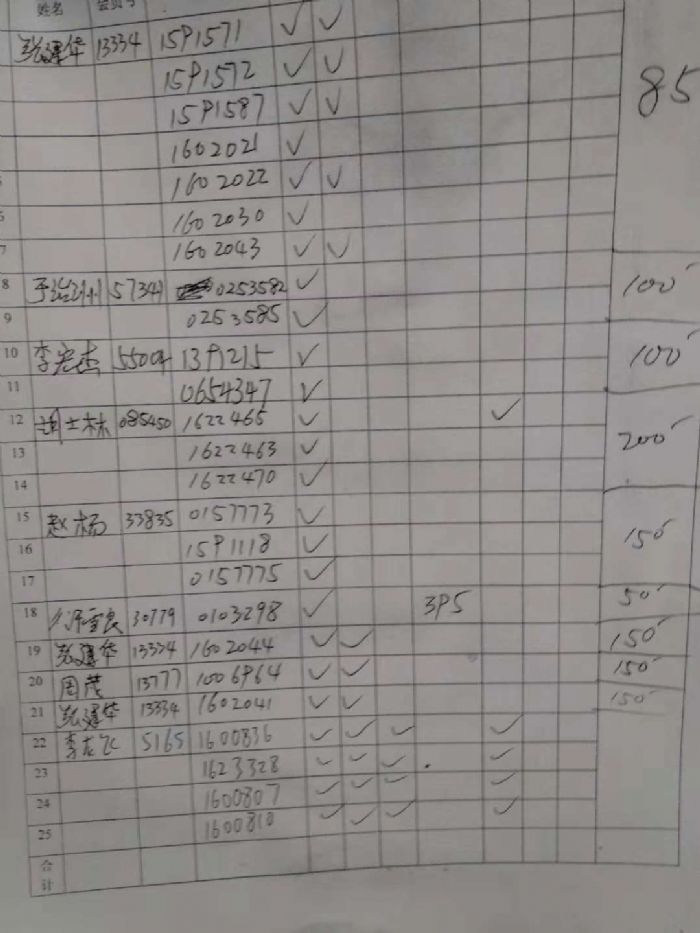 姓名 会员号
张建华 13334 15P1571 ✓ ✓ 85
15P1572 ✓ ✓
15P1587 ✓ ✓
1602021 ✓
1602022 ✓ ✓
6 1602030 ✓
7 1602043 ✓ ✓
8 57341 0253582 ✓ 100
9 0253585 ✓
10 李宏杰 5500 13P1215 ✓ 100
11 0654347 ✓
12 胡士林 085450 1622465 ✓ ✓ 200
13 1622463 ✓
14 1622470 ✓
15 赵杨 33835 0157773 ✓ 150
16 15P1118 ✓
17 0157775 ✓
18 30779 0103298 ✓ 3P5 50
19 张建华 13334 1602044 ✓ ✓ 150
20 周茂 13777 1006964 ✓ ✓ 150
21 张建华 13334 1602041 ✓ ✓ 150
22 李龙飞 5165 1600836 ✓ ✓ ✓ ✓
23 1623328 ✓ ✓ ✓ ✓
24 1600807 ✓ ✓ ✓ ✓
25 1600810 ✓ ✓ ✓ ✓
合计